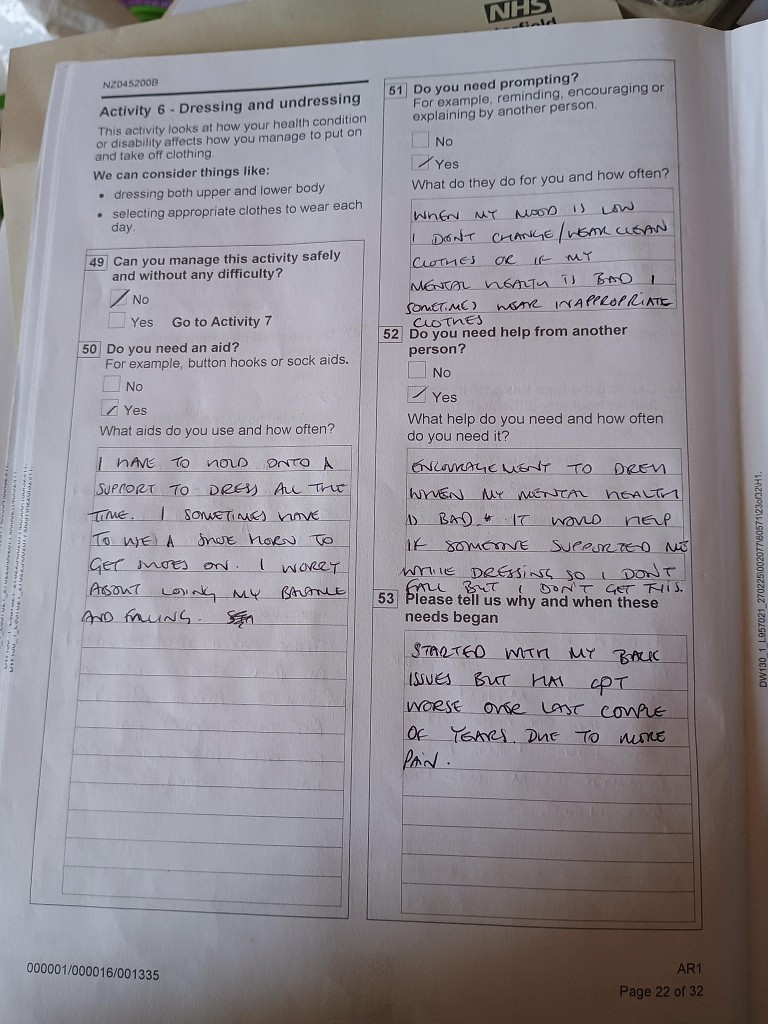 NHS
NZ045200B
Activity 6 - Dressing and undressing
This activity looks at how your health condition
or disability affects how you manage to put on
and take off clothing.
We can consider things like:
• dressing both upper and lower body
• selecting appropriate clothes to wear each
day.
49 Can you manage this activity safely
and without any difficulty?
No
Yes Go to Activity 7
50 Do you need an aid?
For example, button hooks or sock aids.
No
Yes
What aids do you use and how often?
I HAVE TO HOLD ONTO A
SUPPORT TO DRESS ALL THE
TIME. I SOMETIMES HAVE
TO USE A SHOE HORN TO
GET SHOES ON. I WORRY
ABOUT LOSING MY BALANCE
AND FALLING.
51 Do you need prompting?
For example, reminding, encouraging or
explaining by another person.
No
Yes
What do they do for you and how often?
WHEN MY MOOD IS LOW
I DON'T CHANGE/WEAR CLEAN
CLOTHES OR IF MY
MENTAL HEALTH IS BAD I
SOMETIMES WEAR INAPPROPRIATE
CLOTHES
52 Do you need help from another
person?
No
Yes
What help do you need and how often
do you need it?
ENCOURAGEMENT TO DRESS
WHEN MY MENTAL HEALTH
IS BAD. IT WOULD HELP
IF SOMEONE SUPPORTED ME
WHILE DRESSING SO I DON'T
FALL BUT I DON'T GET THIS.
53 Please tell us why and when these
needs began
STARTED WITH MY BACK
ISSUES BUT HAS GOT
WORSE OVER LAST COUPLE
OF YEARS. DUE TO MORE
PAIN.
000001/000016/001335
AR1
Page 22 of 32